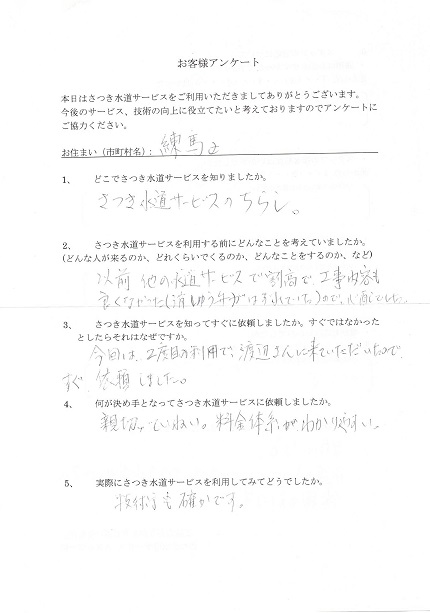 お客様アンケート
本日はさつき水道サービスをご利用いただきましてありがとうございます。
今後のサービス、技術の向上に役立てたいと考えておりますのでアンケートに
ご協力ください。
お住まい（市町村名）：練馬区
1、 どこでさつき水道サービスを知りましたか。
さつき水道サービスのちらし。
2、 さつき水道サービスを利用する前にどんなことを考えていましたか。
(どんな人が来るのか、どれくらいでくるのか、どんなことをするのか、など)
以前他の水道サービスで割高で、工事内容も
良くなかった(はずれていた)ので、心配でした。
3、 さつき水道サービスを知ってすぐに依頼しましたか。すぐではなかった
としたらそれはなぜですか。
今回は、2度目の利用で、渡辺さんに来ていただいたので、
すぐ、依頼しました。
4、 何が決め手となってさつき水道サービスに依頼しましたか。
親切、ていねい。料金体系が、わかりやすい。
5、 実際にさつき水道サービスを利用してみてどうでしたか。
技術も確かです。